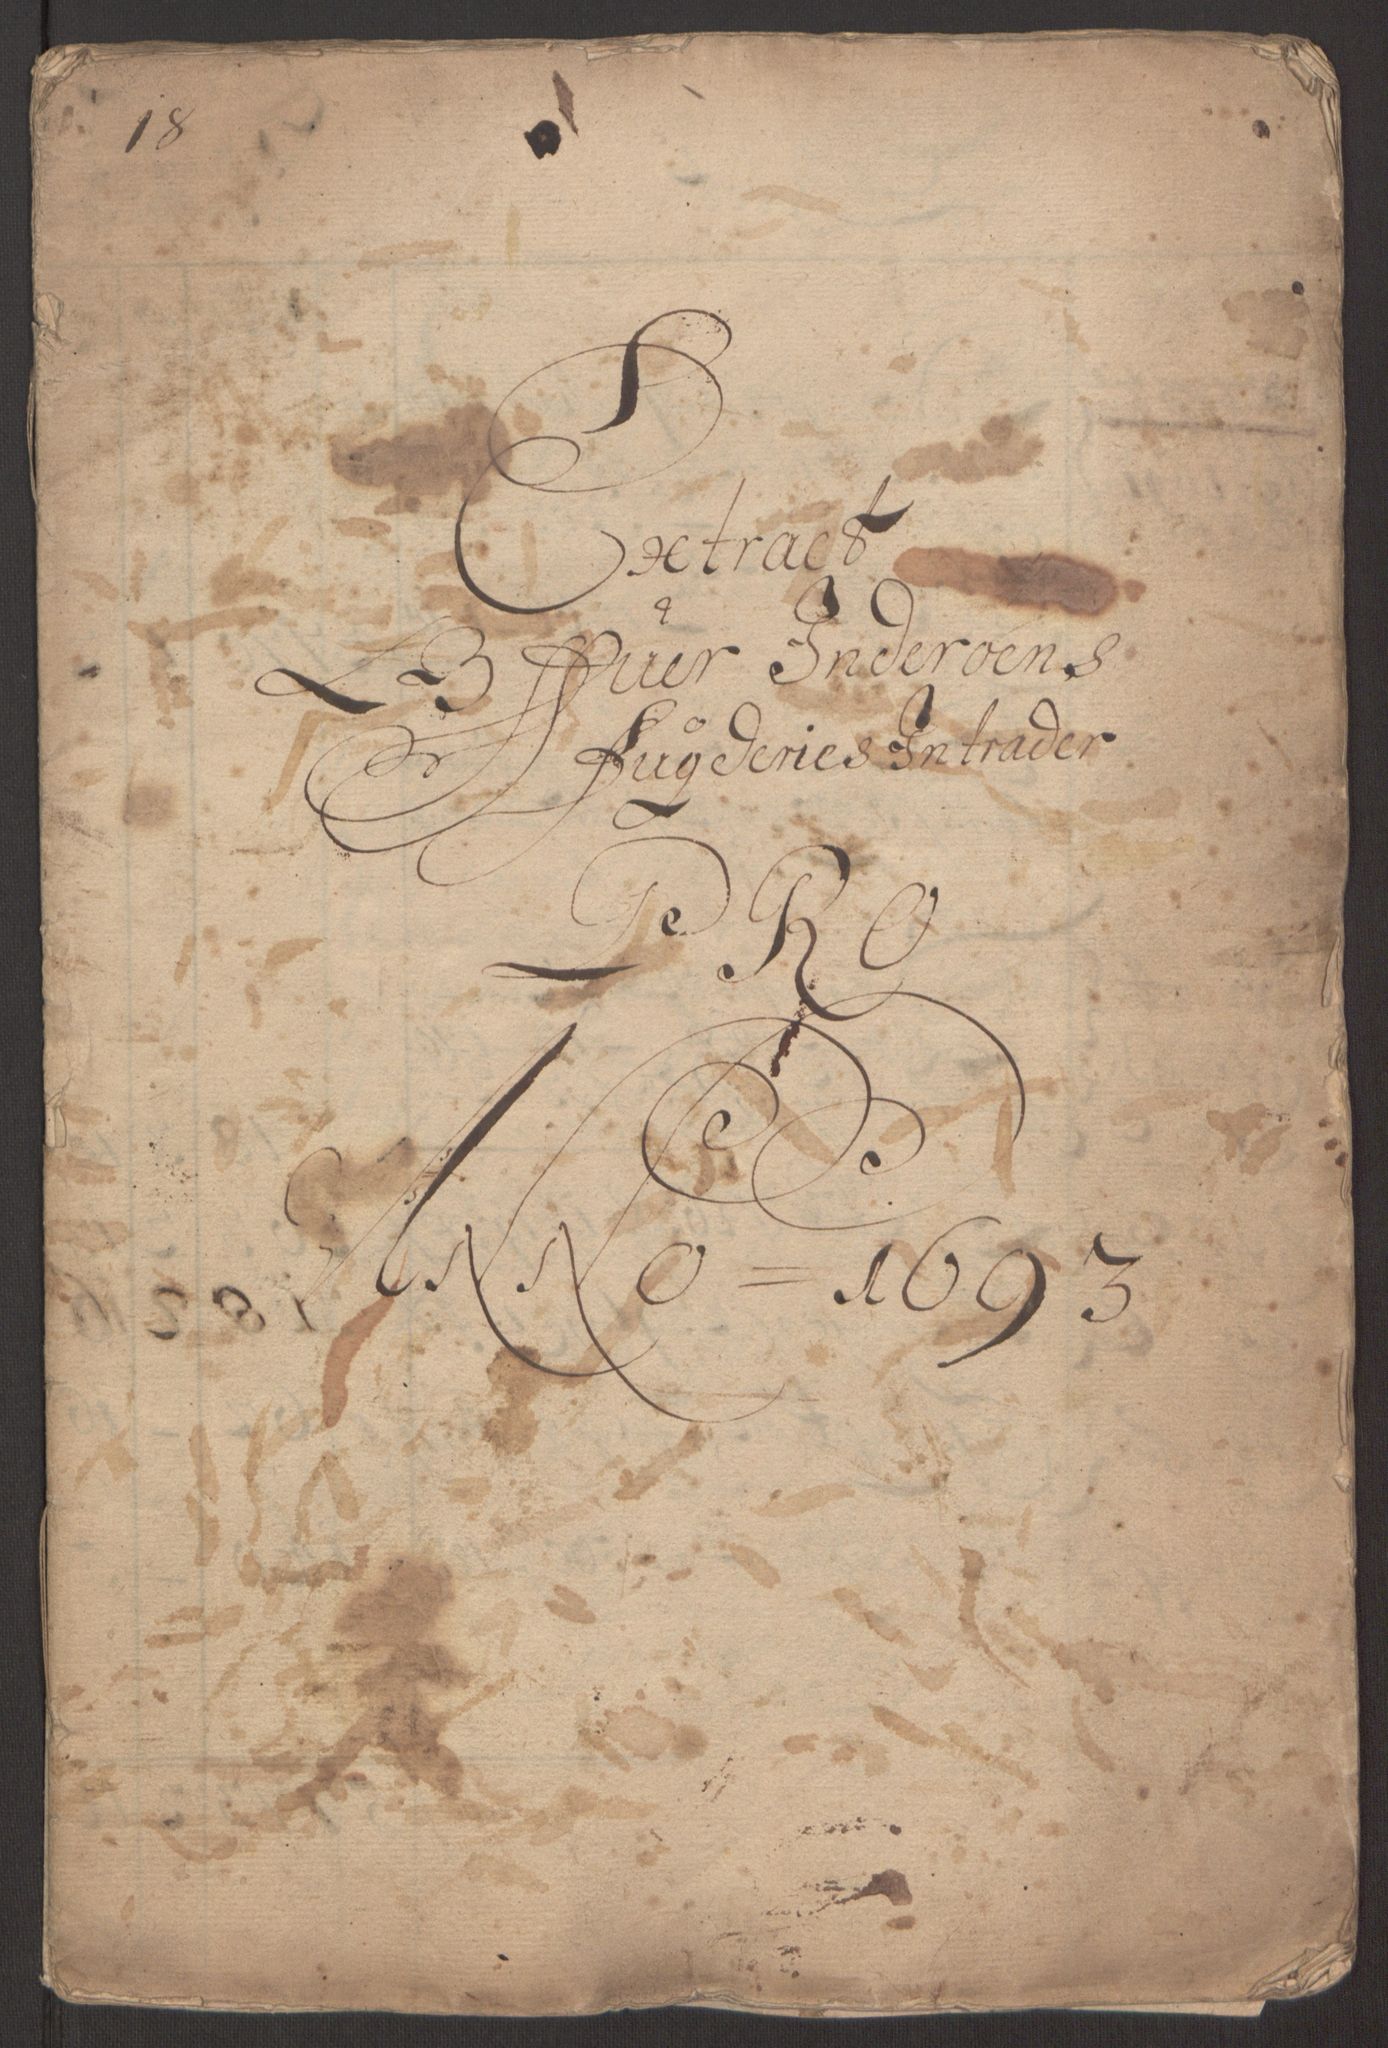 18
Extract
Offuer Inderøens
Fugderies Intrader
PRO
ANNO = 1693